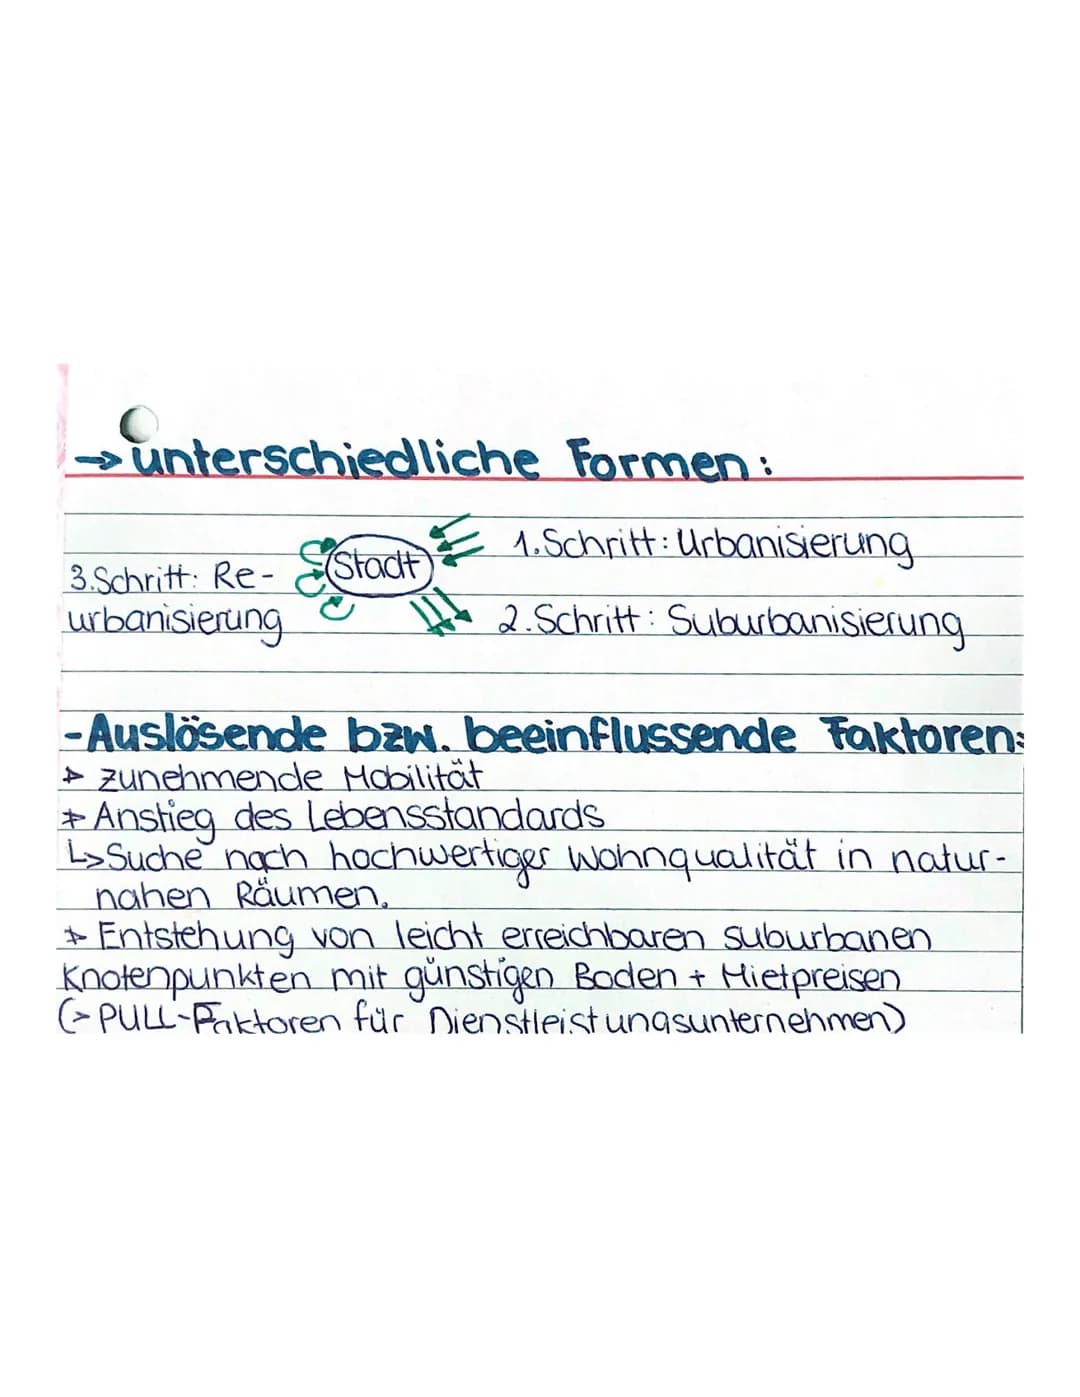 → unterschiedliche Formen:
Stadt
1.Schritt: Urbanisierung
3.Schritt: Re-
urbanisierung
2.Schritt: Suburbanisierung
-Auslösende bzw. beeinflussende Faktoren:
→ zunehmende Mobilität
→ Anstieg des Lebensstandards
↳ Suche nach hochwertiger Wohnqualität in natur-
nahen Räumen.
→ Entstehung von leicht erreichbaren suburbanen
Knotenpunkten mit günstigen Boden + Mietpreisen
(→ PULL-Faktoren für Dienstleistungsunternehmen)